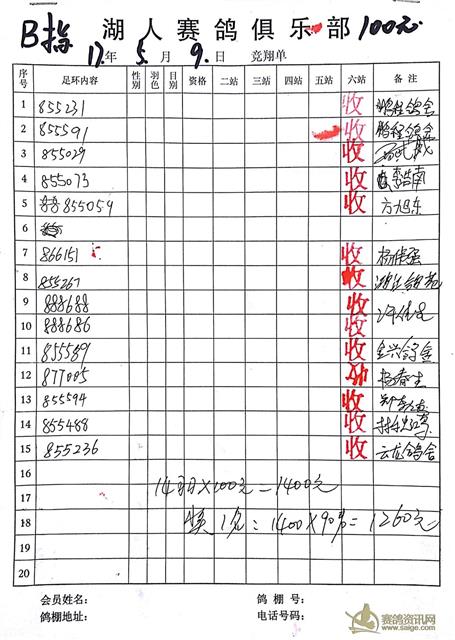 B指 湖人赛鸽俱乐部 100元
17年 5月 9日 竞翔单
序号 足环内容 性别 羽色 目别 资格 二站 三站 四站 五站 六站 备注
1 855231 收 鹏程鸽舍
2 855591 收 鹏程鸽舍
3 855029 收
4 855073 收 李浩南
5 855059 收 方旭东
6
7 866151 收 杨伟强
8 855267 收
9 888688 收
10 888686 收
11 855589 收 金兴鸽舍
12 877005 杨春生
13 855594 收
14 855488 收
15 855236 收 云龙鸽舍
16
14羽×100元=1400元
17
18 奖1名:1400×90%=1260元
19
20
会员姓名: 鸽棚号:
鸽棚地址: 电话号码:
赛鸽资讯网
www.saige.com